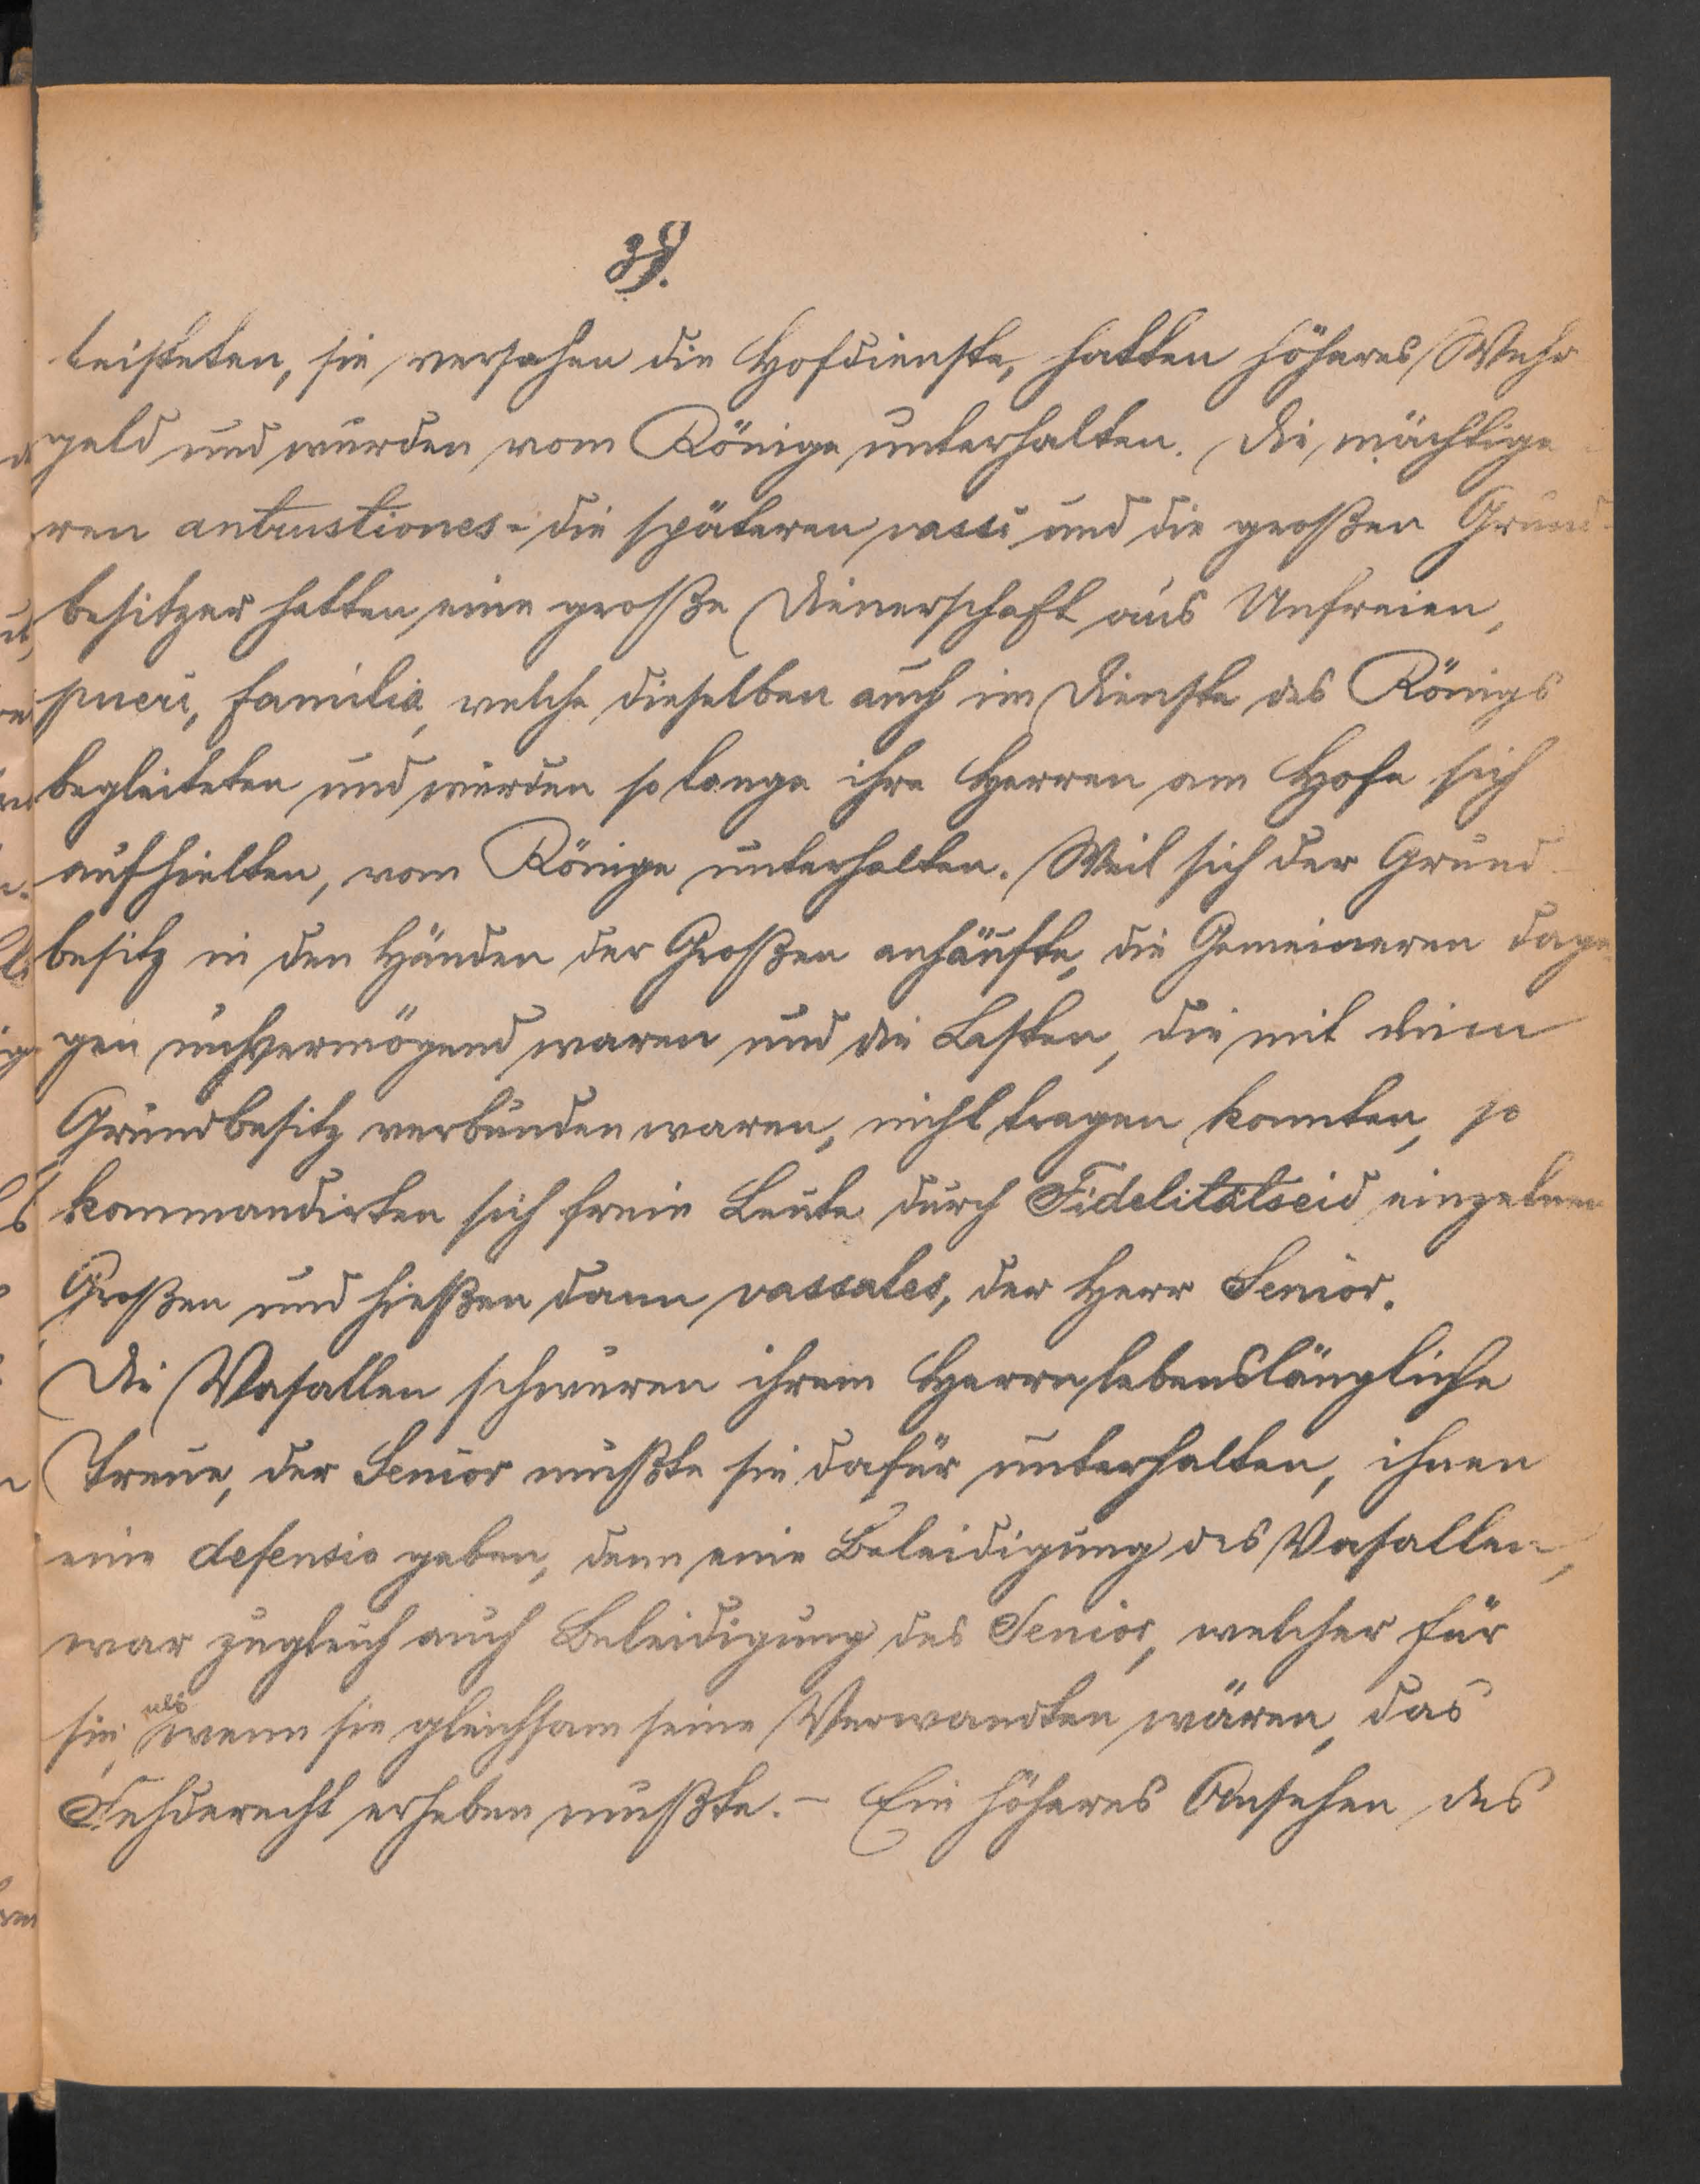 39.
leisteten, sie versahen die Hofdienste, hatten höheres Wehr
geld und wurden vom Könige unterhalten. Die mächtige
ren antrustiones - die späteren vassi und die großen Grund-
besitzer hatten eine große Dienerschaft aus Unfreien,
pueri, familia, welche dieselben auch im Dienste des Königs
begleiteten und wurden so lange ihre Herren am Hofe sich
aufhielten, vom Könige unterhalten. Weil sich der Grund-
besitz in den Händen der Großen anhäufte, die Gemeineren dage
gen unvermögend waren und die Lasten, die mit dem
Grundbesitz verbunden waren, nicht tragen konnten, so
kommandirten sich freie Leute durch Fidelitätseid einzelnen
Großen und hießen dann vassales, der Herr Senior.
Die Vasallen schwuren ihrem Herrn lebenslängliche
Treue, der Senior mußte sie dafür unterhalten, ihnen
eine defensio geben, denn eine Beleidigung des Vasallen,
war zugleich auch Beleidigung des Senior, welcher für
sie, als wenn sie gleichsam seine Verwandten wären, das
Fehderecht erheben mußte. - Ein höheres Ansehen des